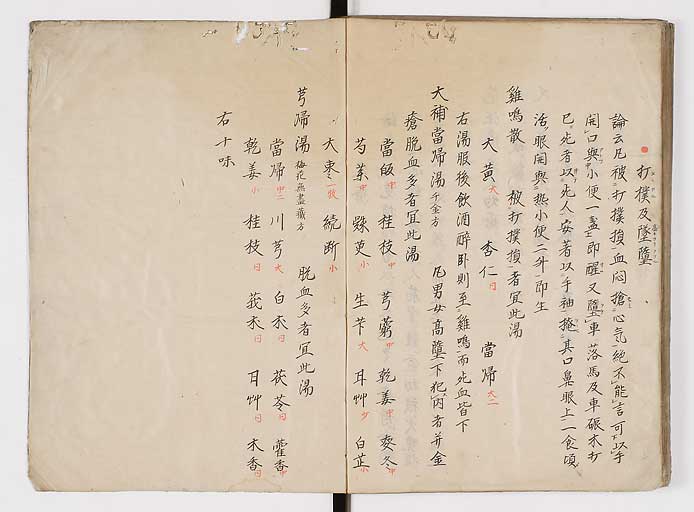 打撲及墜墮
論云凡被打撲損血悶搶心気絶不能言可以手
開口與小便一盞即醒又墮車落馬及車碾木打
已死者以死人安著以手袖掩其口鼻眼上一食頃
活眼開與熱小便二升即生
雞鳴散 被打撲損者宜此湯
大黄大 杏仁 當帰大二
右湯服後飲酒醉卧則至雞鳴而死血皆下
大補當帰湯千金方 凡男女高墮下犯内者并金
瘡脱血多者宜此湯
當皈中 桂枝中 芎藭中 乾姜中 麥冬中
芍薬中 小 生芐大 耳艸少 白芷小
大枣一枚 続断小
芎帰湯 梅花無盡蔵方 脱血多者宜此湯
當帰中二 川芎大 白朮曰 茯苓曰 藿香中
乾姜小 桂枝曰 莪朮曰 耳艸曰 木香曰
右十味